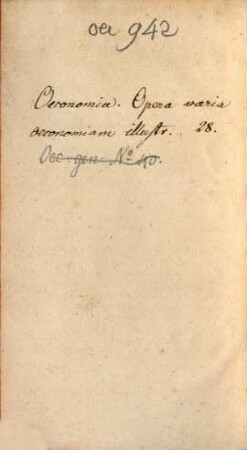 oec 942
Oeconomia. Opera varia
oeconomiam illustr. 28.
Oec gen No 40.